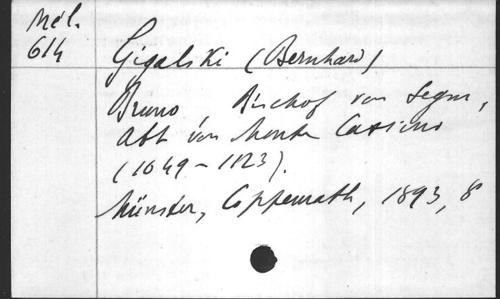 Mél.
614
Gigalski (Bernhard)
Bruno, Bischof von Segni,
Abt von Monte Cassino
(1049-1123).
Münster, Coppenrath, 1893, 8°